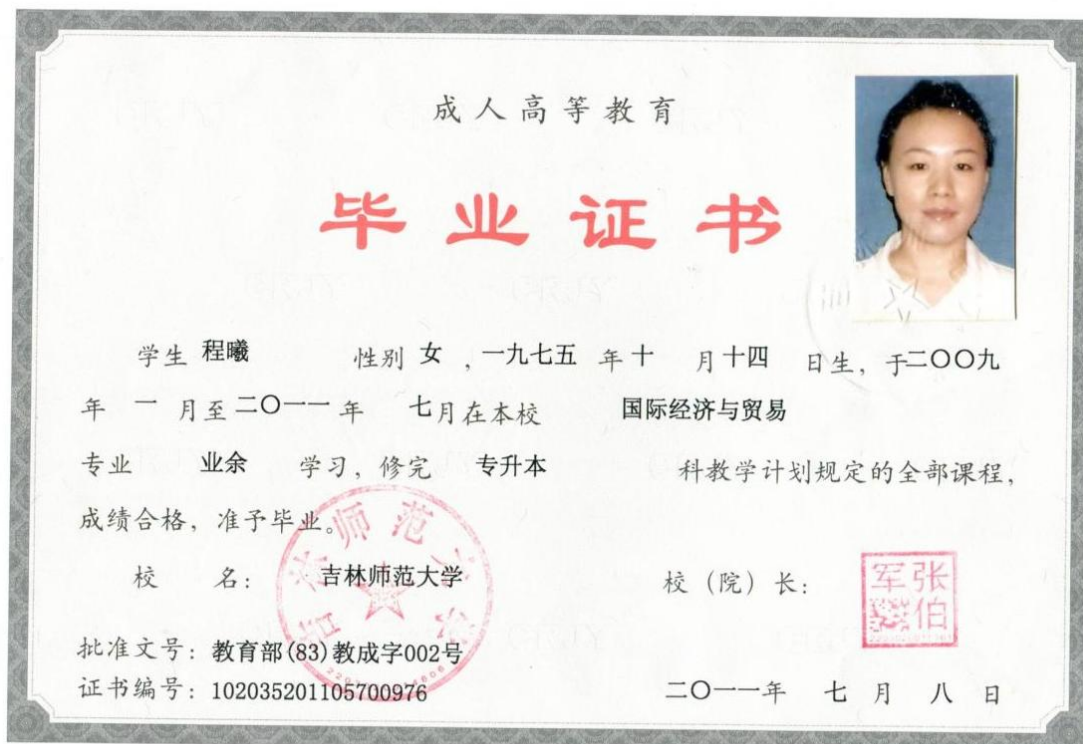 成人高等教育
毕业证书
学生 程曦 性别 女 ，一九七五 年 十 月 十四 日生，于二〇〇九
年 一 月至 二〇一一 年 七月在本校 国际经济与贸易
专业 业余 学习，修完 专升本 科教学计划规定的全部课程，
成绩合格，准予毕业。
校 名： 吉林师范大学
校（院）长：
张伯军
批准文号：教育部(83)教成字002号
证书编号：102035201105700976
二〇一一年 七 月 八 日
吉林师范大学